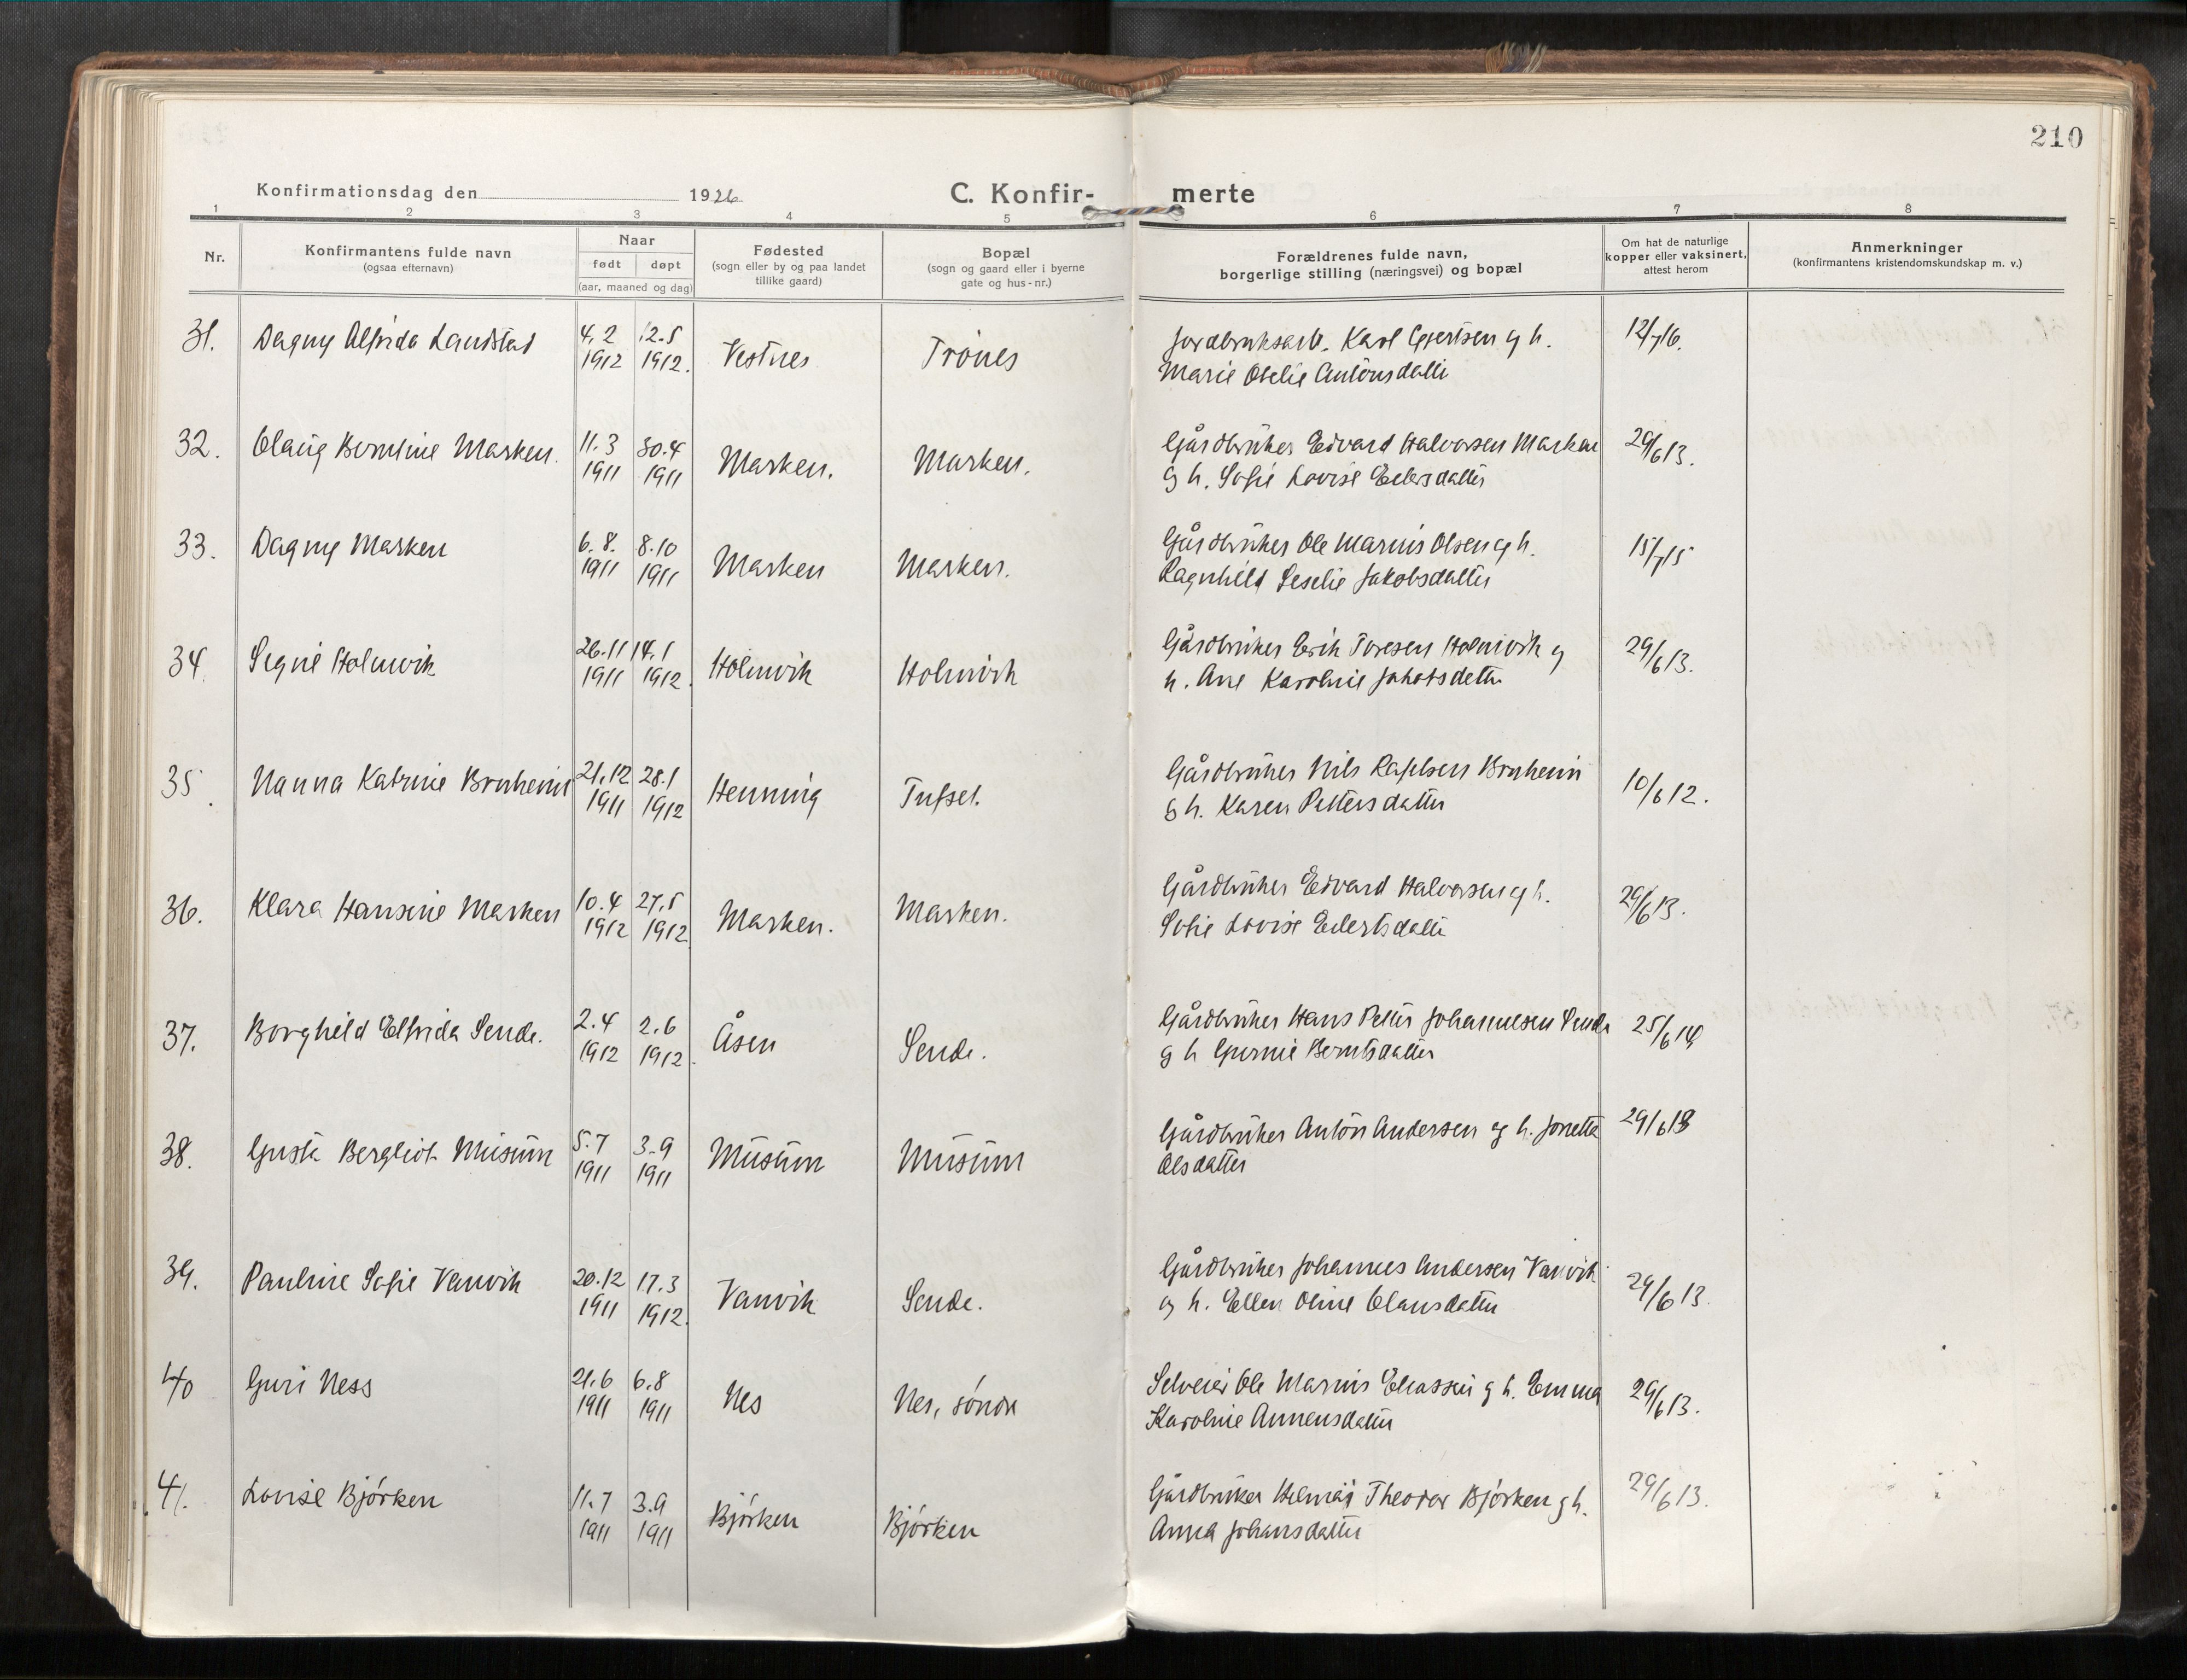 210
Konfirmationsdag den 1926
C. Konfir- merte
1 2 3 4 5 6 7 8
Nr.
Konfirmantens fulde navn
(ogsaa efternavn)
Naar
født døpt
(aar, maaned og dag)
Fødested
(sogn eller by og paa landet
tillike gaard)
Bopæl
(sogn og gaard eller i byerne
gate og hus-nr.)
Forældrenes fulde navn,
borgerlige stilling (næringsvei) og bopæl
Om hat de naturlige
kopper eller vaksinert,
attest herom
Anmerkninger
(konfirmantens kristendomskundskap m. v.)
31. Dagny Alfrida Landstad 4.2 12.5 Vestnes Trönes Jordbruksarb. Karl Gjertsen og h. 12/7 16.
1912 1912. Marie Otelie Antonsdatter
32. Olaug Berntine Marken. 11.3 30.4 Marken. Marken. Gårdbruker Edvard Halvorsen Marken 29/6 13.
1911 1911 og h. Sofie Lovise Eilersdatter
33. Dagny Marken 6.8. 8.10 Marken Marken. Gårdbruker Ole Marius Olsen og h. 15/7 15
1911 1911 Ragnhild Seselie Jakobsdatter
34. Signe Holmvik 26.11 14.1 Holmvik Holmvik Gårdbruker Erik Toresen Holmvik og 29/6 13.
1911 1912. h. Ane Karoline Jakobsdatter
35. Nanna Katrine Bruheim 21.12 28.1 Henning Tufset. Gårdbruker Nils Bruheim 10/6 12.
1911 1912 og h. Karen Pettersdatter
36. Klara Hansine Marken 10.4 27.5 Marken. Marken. Gårdbruker Edvard Halvorsen og h. 29/6 13.
1912 1912 Sofie Lovise Eilertsdatter
37. Borghild Elfrida Sende. 2.4 2.6 Åsen Sende. Gårdbruker Hans Petter Johannesen Sende 25/6 14
1912 1912. og h Gurine Berntsdatter
38. Gusta Bergliot Musum 5.7 3.9 Musum Musum Gårdbruker Anton Andersen og h. Jonetta 29/6 13
1911 1911 Olsdatter
39. Pauline Sofie Vanvik 20.12 17.3 Vanvik Sende. Gårdbruker Johannes Andersen Vanvik 29/6 13.
1911 1912. og h. Ellen Oline Olausdatter
40 Guri Ness 21.6 6.8 Nes Nes, söndre Selveier Ole Marius Eliassen og h. Emma 29/6 13.
1911 1911 Karoline Annensdatter
41. Lovise Björken 11.7 3.9 Björken Björken Gårdbruker Hilmar Theodor Björken og h. 29/6 13.
1911 1911 Anna Johansdatter